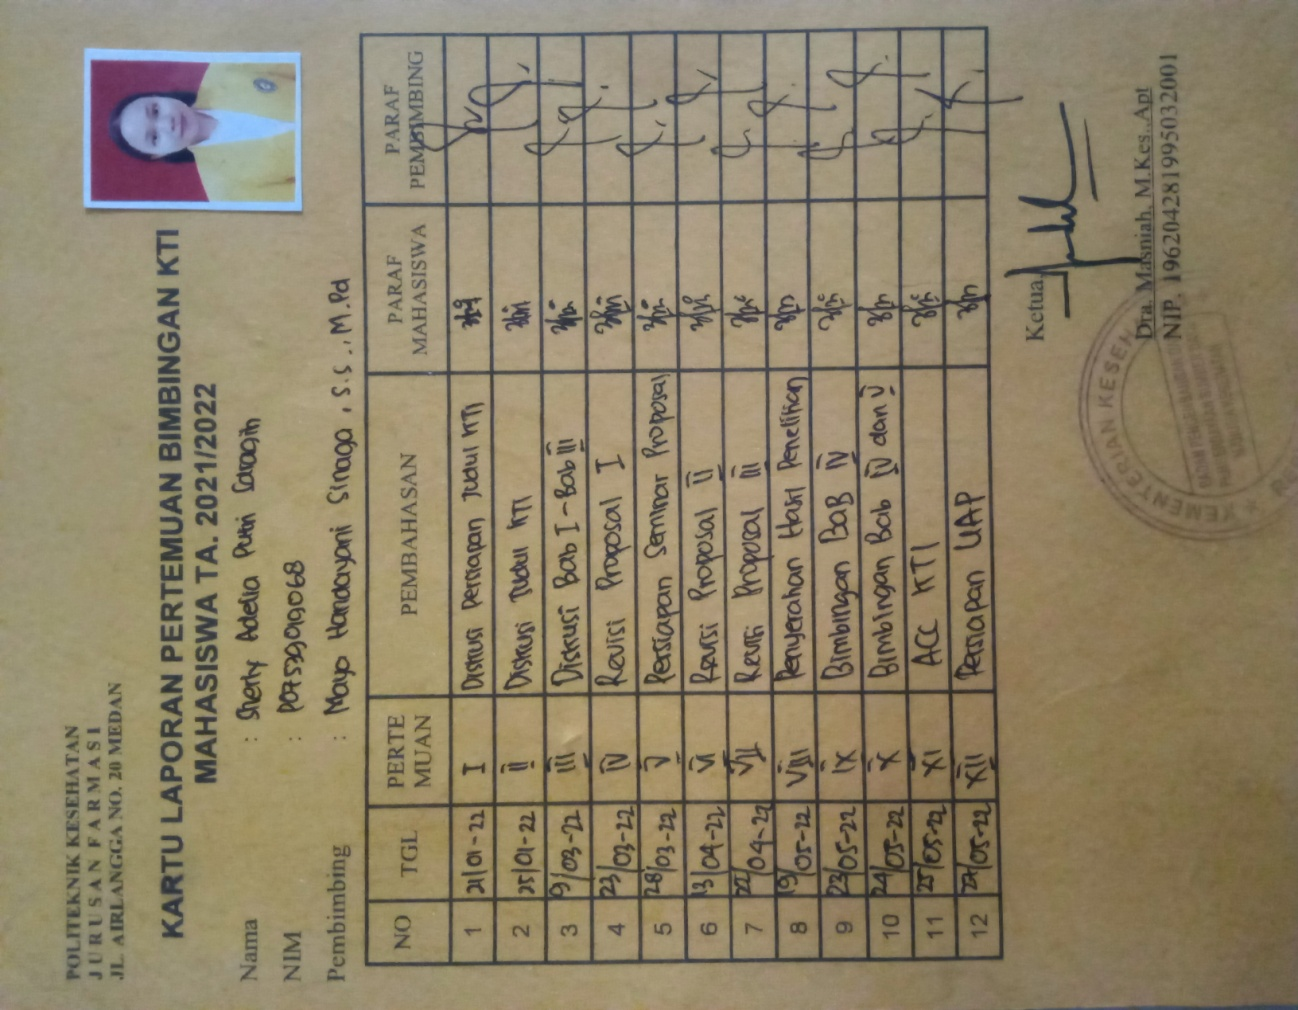 POLITEKNIK KESEHATAN
JURUSAN FARMASI
JL. AIRLANGGA NO. 20 MEDAN
KARTU LAPORAN PERTEMUAN BIMBINGAN KTI
MAHASISWA TA. 2021/2022
Nama : Sherly Adelia Putri Saragih
NIM : P07539019068
Pembimbing : Maya Handayani Sinaga, S.S., M.Pd
NO TGL PERTEMUAN PEMBAHASAN PARAF MAHASISWA PARAF PEMBIMBING
1 21/01-22 I Diskusi Persiapan Judul KTI
2 25/01-22 II Diskusi Judul KTI
3 9/03-22 III Diskusi Bab I - Bab III
4 23/03-22 IV Revisi Proposal I
5 28/03-22 V Persiapan Seminar Proposal
6 13/04-22 VI Revisi Proposal II
7 22/04-22 VII Revisi Proposal III
8 19/05-22 VIII Penyerahan Hasil Penelitian
9 23/05-22 IX Bimbingan BAB IV
10 24/05-22 X Bimbingan Bab IV dan V
11 25/05-22 XI ACC KTI
12 /05-22 XII Persiapan UAP
Ketua
Dra. Masniah, M.Kes., Apt
NIP. 196204281995032001
KEMENTERIAN KESEH